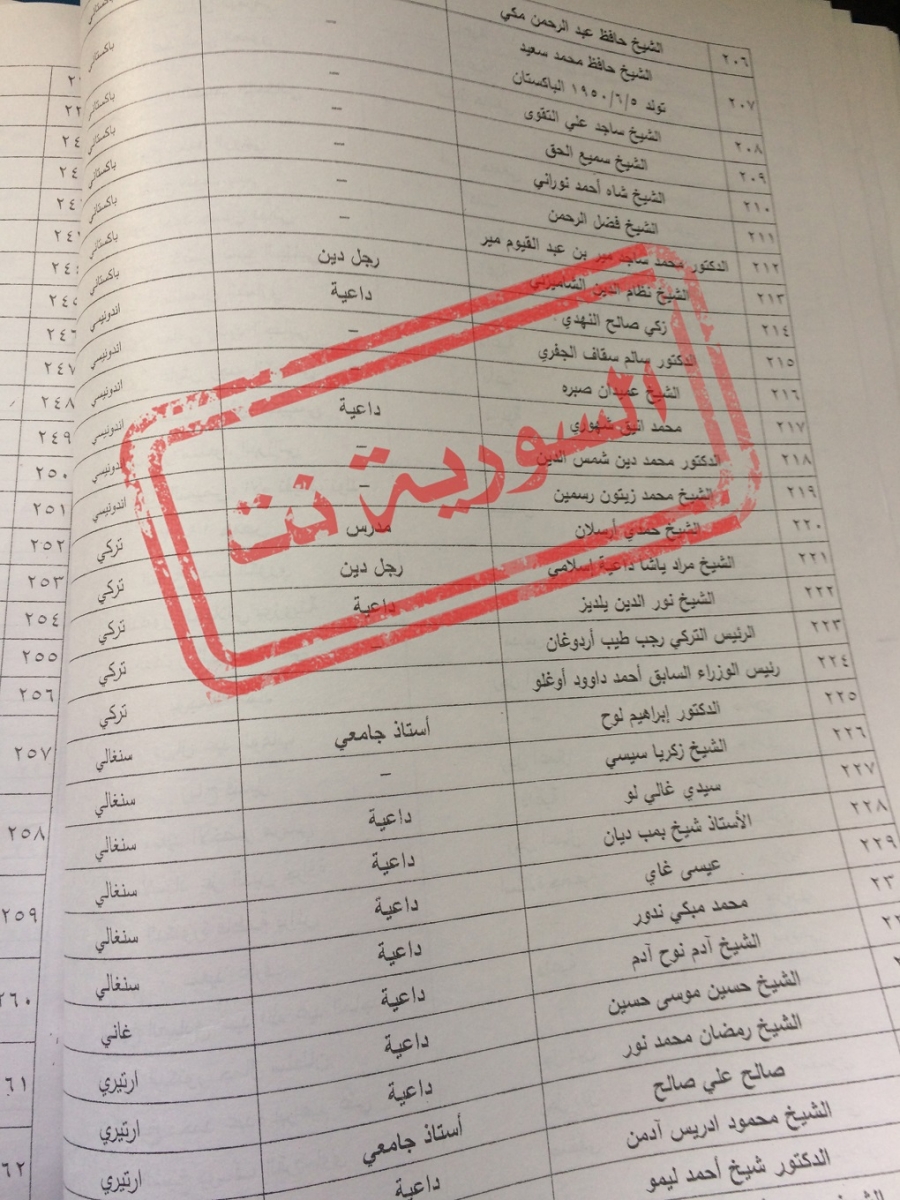 ٢٠٦ الشيخ حافظ عبد الرحمن مكي –
٢٠٧ الشيخ حافظ محمد سعيد – باكستاني
تولد ١٩٥٠/٦/٥ الباكستان
٢٠٨ الشيخ ساجد علي النقوي – باكستاني
٢٠٩ الشيخ سميع الحق – باكستاني
٢١٠ الشيخ شاه أحمد نوراني – باكستاني
٢١١ الشيخ فضل الرحمن – باكستاني
٢١٢ الدكتور محمد ساجد مير بن عبد القيوم مير رجل دين باكستاني
٢١٣ الشيخ نظام الدين داعية باكستاني
٢١٤ زكي صالح النهدي – اندونيسي
٢١٥ الدكتور سالم سقاف الجفري – اندونيسي
٢١٦ الشيخ عميدان صبره داعية اندونيسي
٢١٧ محمد انيق شهوري – اندونيسي
٢١٨ الدكتور محمد دين شمس الدين – اندونيسي
٢١٩ الشيخ محمد زيتون رسمين اندونيسي
٢٢٠ الشيخ حمدي أرسلان مدرس تركي
٢٢١ الشيخ مراد ياشا داعية إسلامي رجل دين تركي
٢٢٢ الشيخ نور الدين يلديز داعية تركي
٢٢٣ الرئيس التركي رجب طيب أردوغان تركي
٢٢٤ رئيس الوزراء السابق أحمد داوود أوغلو تركي
٢٢٥ الدكتور إبراهيم لوح أستاذ جامعي سنغالي
٢٢٦ الشيخ زكريا سيسي – سنغالي
٢٢٧ سيدي غالي لو داعية سنغالي
٢٢٨ الأستاذ شيخ بمب ديان داعية سنغالي
٢٢٩ عيسى غاي داعية سنغالي
٢٣ محمد مبكي ندور داعية سنغالي
الشيخ آدم نوح آدم داعية غاني
الشيخ حسين موسى حسين داعية ارتيري
الشيخ رمضان محمد نور داعية ارتيري
صالح علي صالح أستاذ جامعي ارتيري
الشيخ محمود ادريس آدمن داعية
الدكتور شيخ أحمد ليمو
السورية نت
٢٤٦
٢٤٧
٢٤٨
٢٤٩
٢٥٠
٢٥١
٢٥٢
٢٥٣
٢٥٤
٢٥٥
٢٥٦
٢٥٧
٢٥٨
٢٥٩
٢٦٠
٦١
٦٢